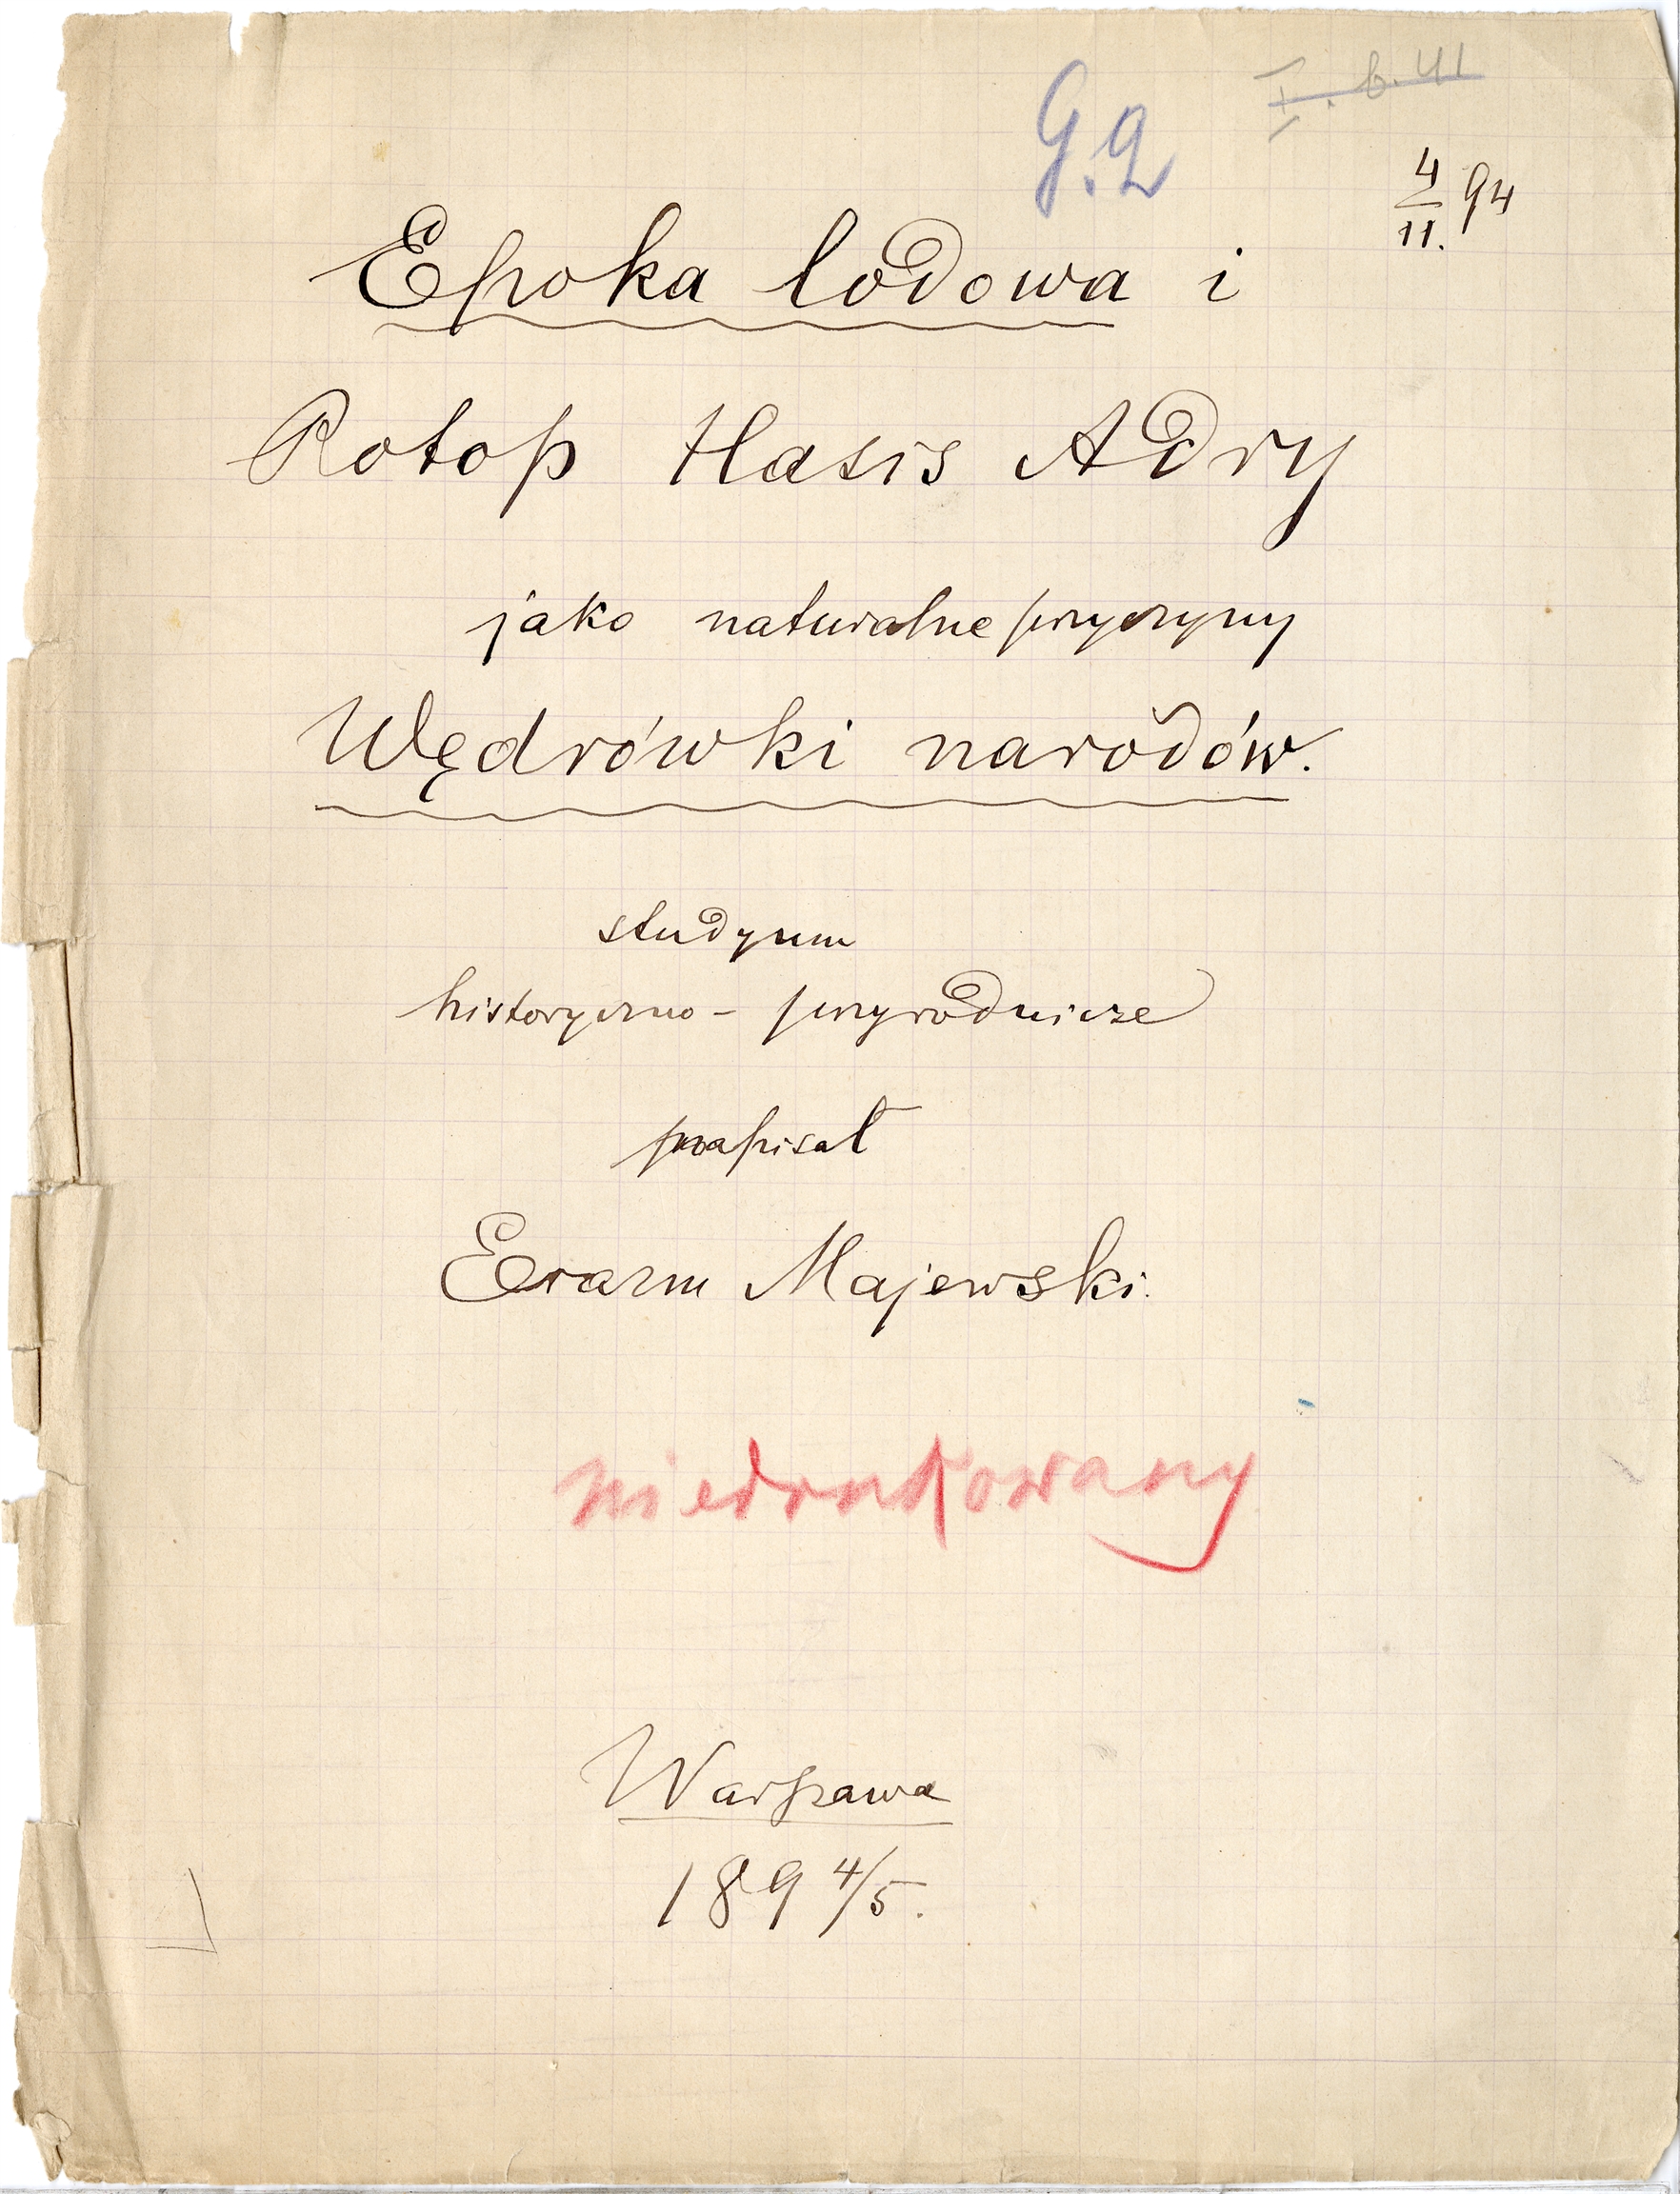 I. b. 41
G.2
4/11. 94
Epoka lodowa i
Potop Hasis Adry
jako naturalne przyczyny
Wędrówki narodów.
studyum
historyczno - przyrodnicze
napisał
Erazm Majewski.
niedrukowany
Warszawa
189 4/5.